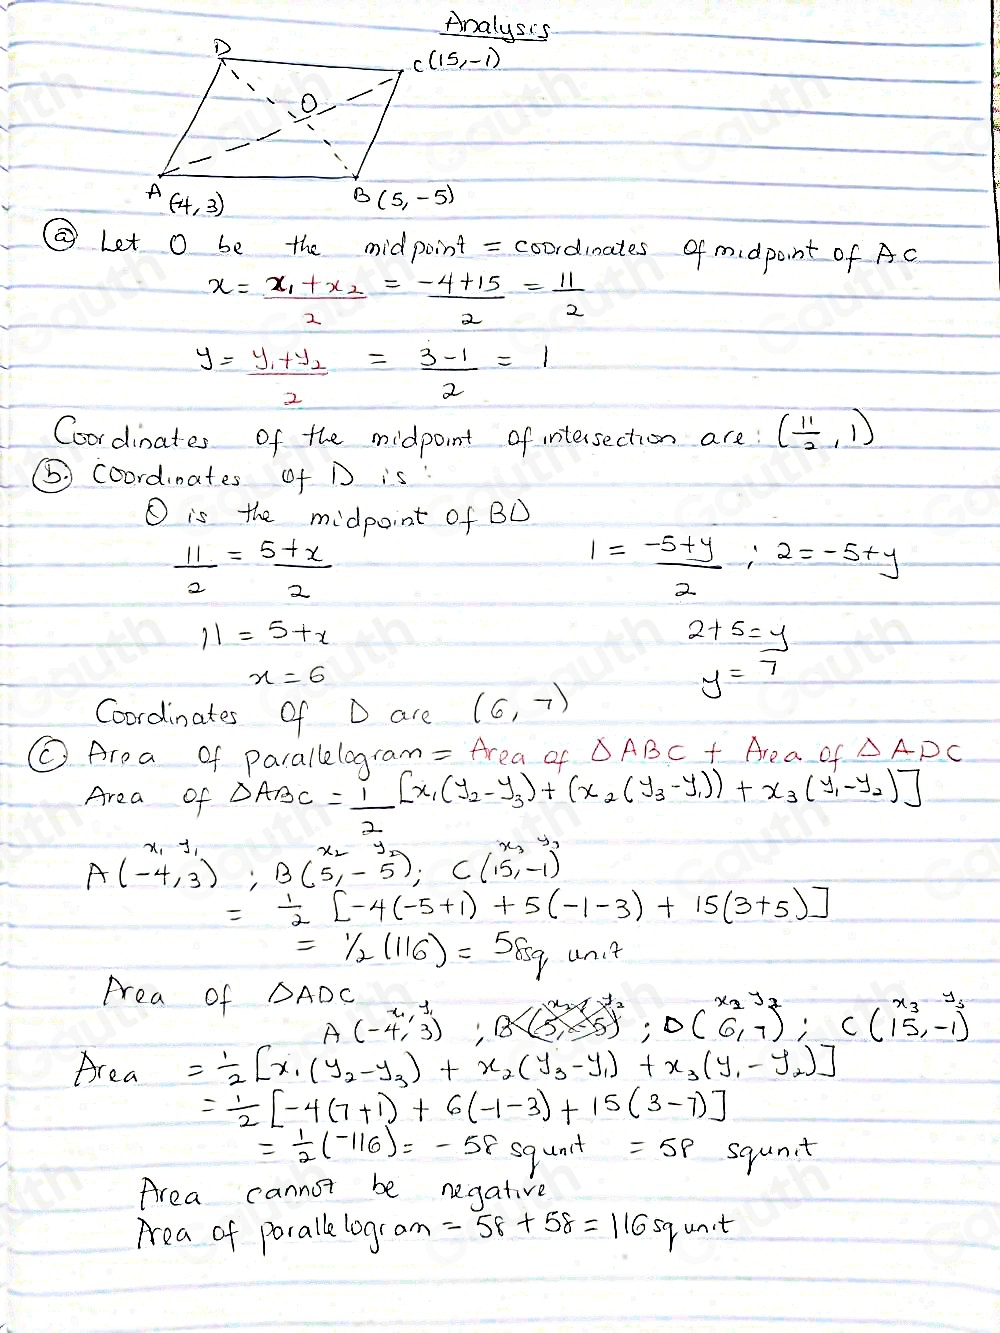 Analysis
D
C(15,-1)
O
A (-4, 3)
B (5, -5)
(a) Let O be the midpoint = coordinates of midpoint of AC
x = x₁ + x₂ / 2 = -4+15 / 2 = 11/2
y = y₁+y₂ / 2 = 3-1 / 2 = 1
Coordinates of the midpoint of intersection are: (11/2, 1)
(b.) Coordinates of D is:
O is the midpoint of BD
11/2 = 5+x / 2    1 = -5+y / 2 ; 2 = -5+y
11 = 5+x    2+5=y
x = 6    y = 7
Coordinates of D are (6, 7)
(c) Area of parallelogram = Area of △ABC + Area of △ADC
Area of △ABC = 1/2 [x₁(y₂-y₃)+(x₂(y₃-y₁)) + x₃(y₁-y₂)]
x₁ y₁ x₂ y₂ x₃ y₃
A(-4,3) ; B(5,-5); C(15,-1)
= 1/2 [-4(-5+1) + 5(-1-3) + 15(3+5)]
= 1/2 (116) = 58sq unit
Area of △ADC
x₁, y₁ x₂ y₂ x₂ y₂ x₃ y₃
A(-4, 3) ; B(5,-5) ; D(6,7) ; C(15,-1)
Area = 1/2 [x₁(y₂-y₃) + x₂(y₃-y₁) + x₃(y₁-y₂)]
= 1/2 [-4(7+1) + 6(-1-3) + 15(3-7)]
= 1/2 (-116) = -58 sq unit = 58 squnit
Area cannot be negative
Area of parallelogram = 58 + 58 = 116 sq unit
Gauth